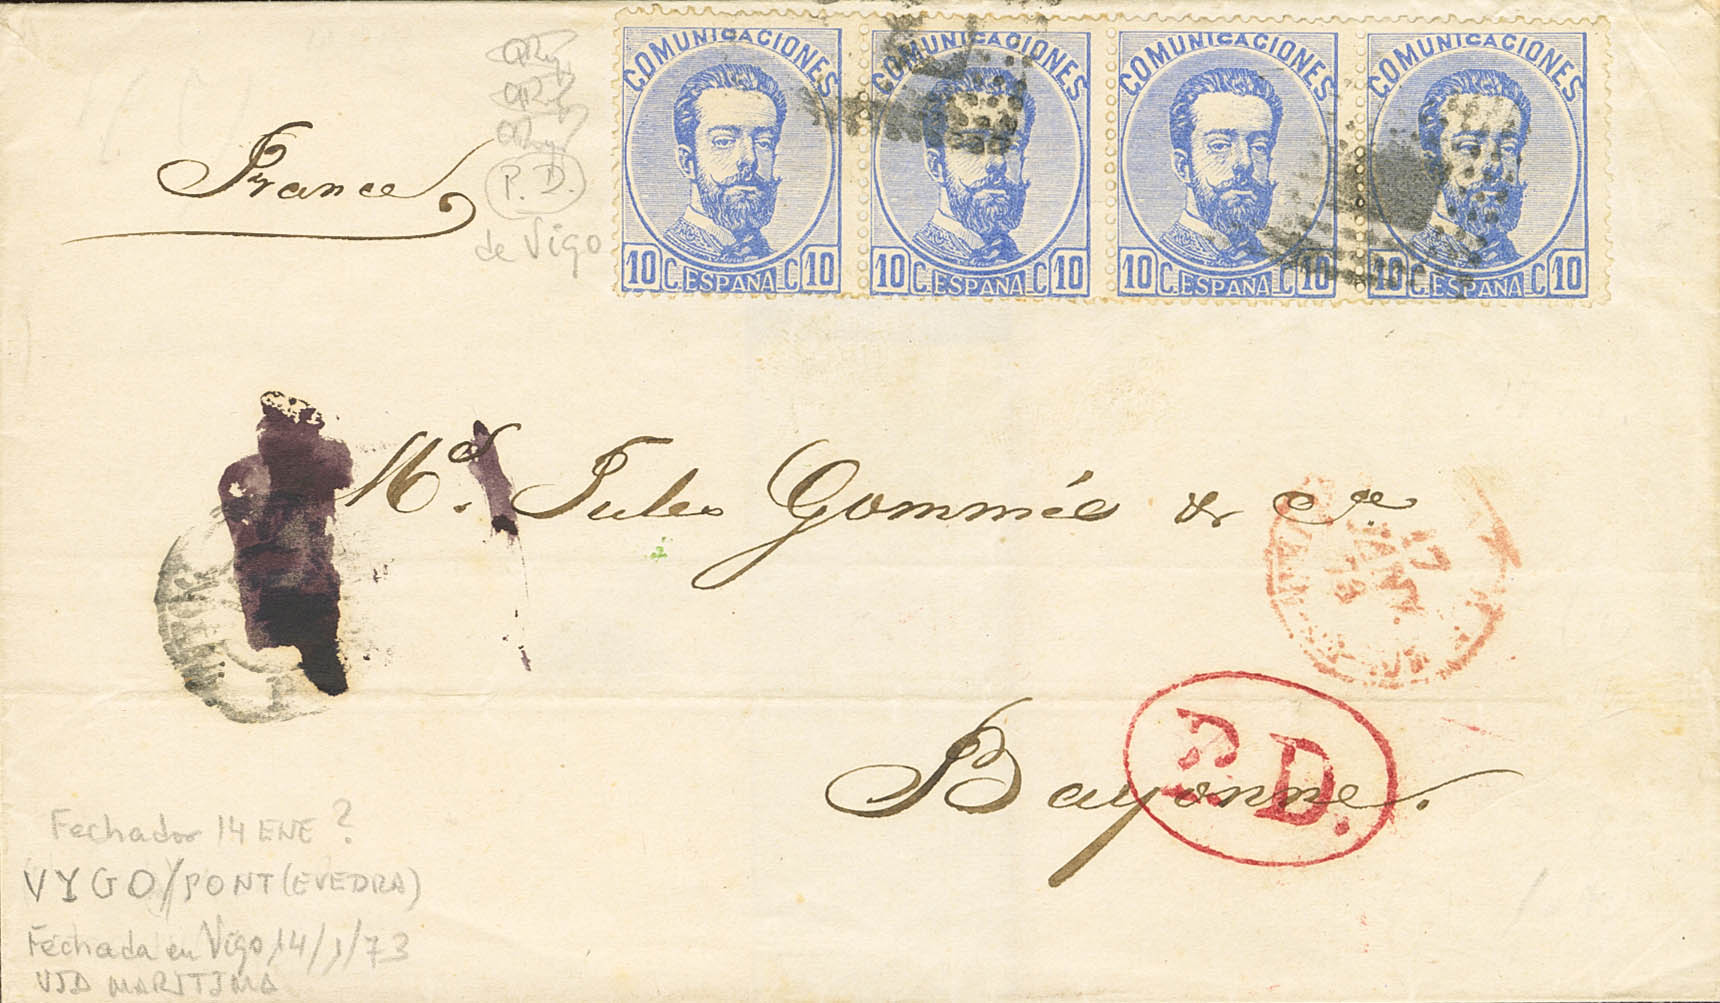 COMUNICACIONES
10 C. ESPAÑA C 10
COMUNICACIONES
10 C. ESPAÑA C 10
COMUNICACIONES
10 C. ESPAÑA C 10
COMUNICACIONES
10 C. ESPAÑA C 10
P. D.
de Vigo
France
Md. Jules Gommés & Cie
17
JANV.
73
Bayonne.
P.D.
Fechador 14 ENE?
VYGO/PONT(EVEDRA)
Fechada en Vigo 14/1/73
VIA MARITIMA